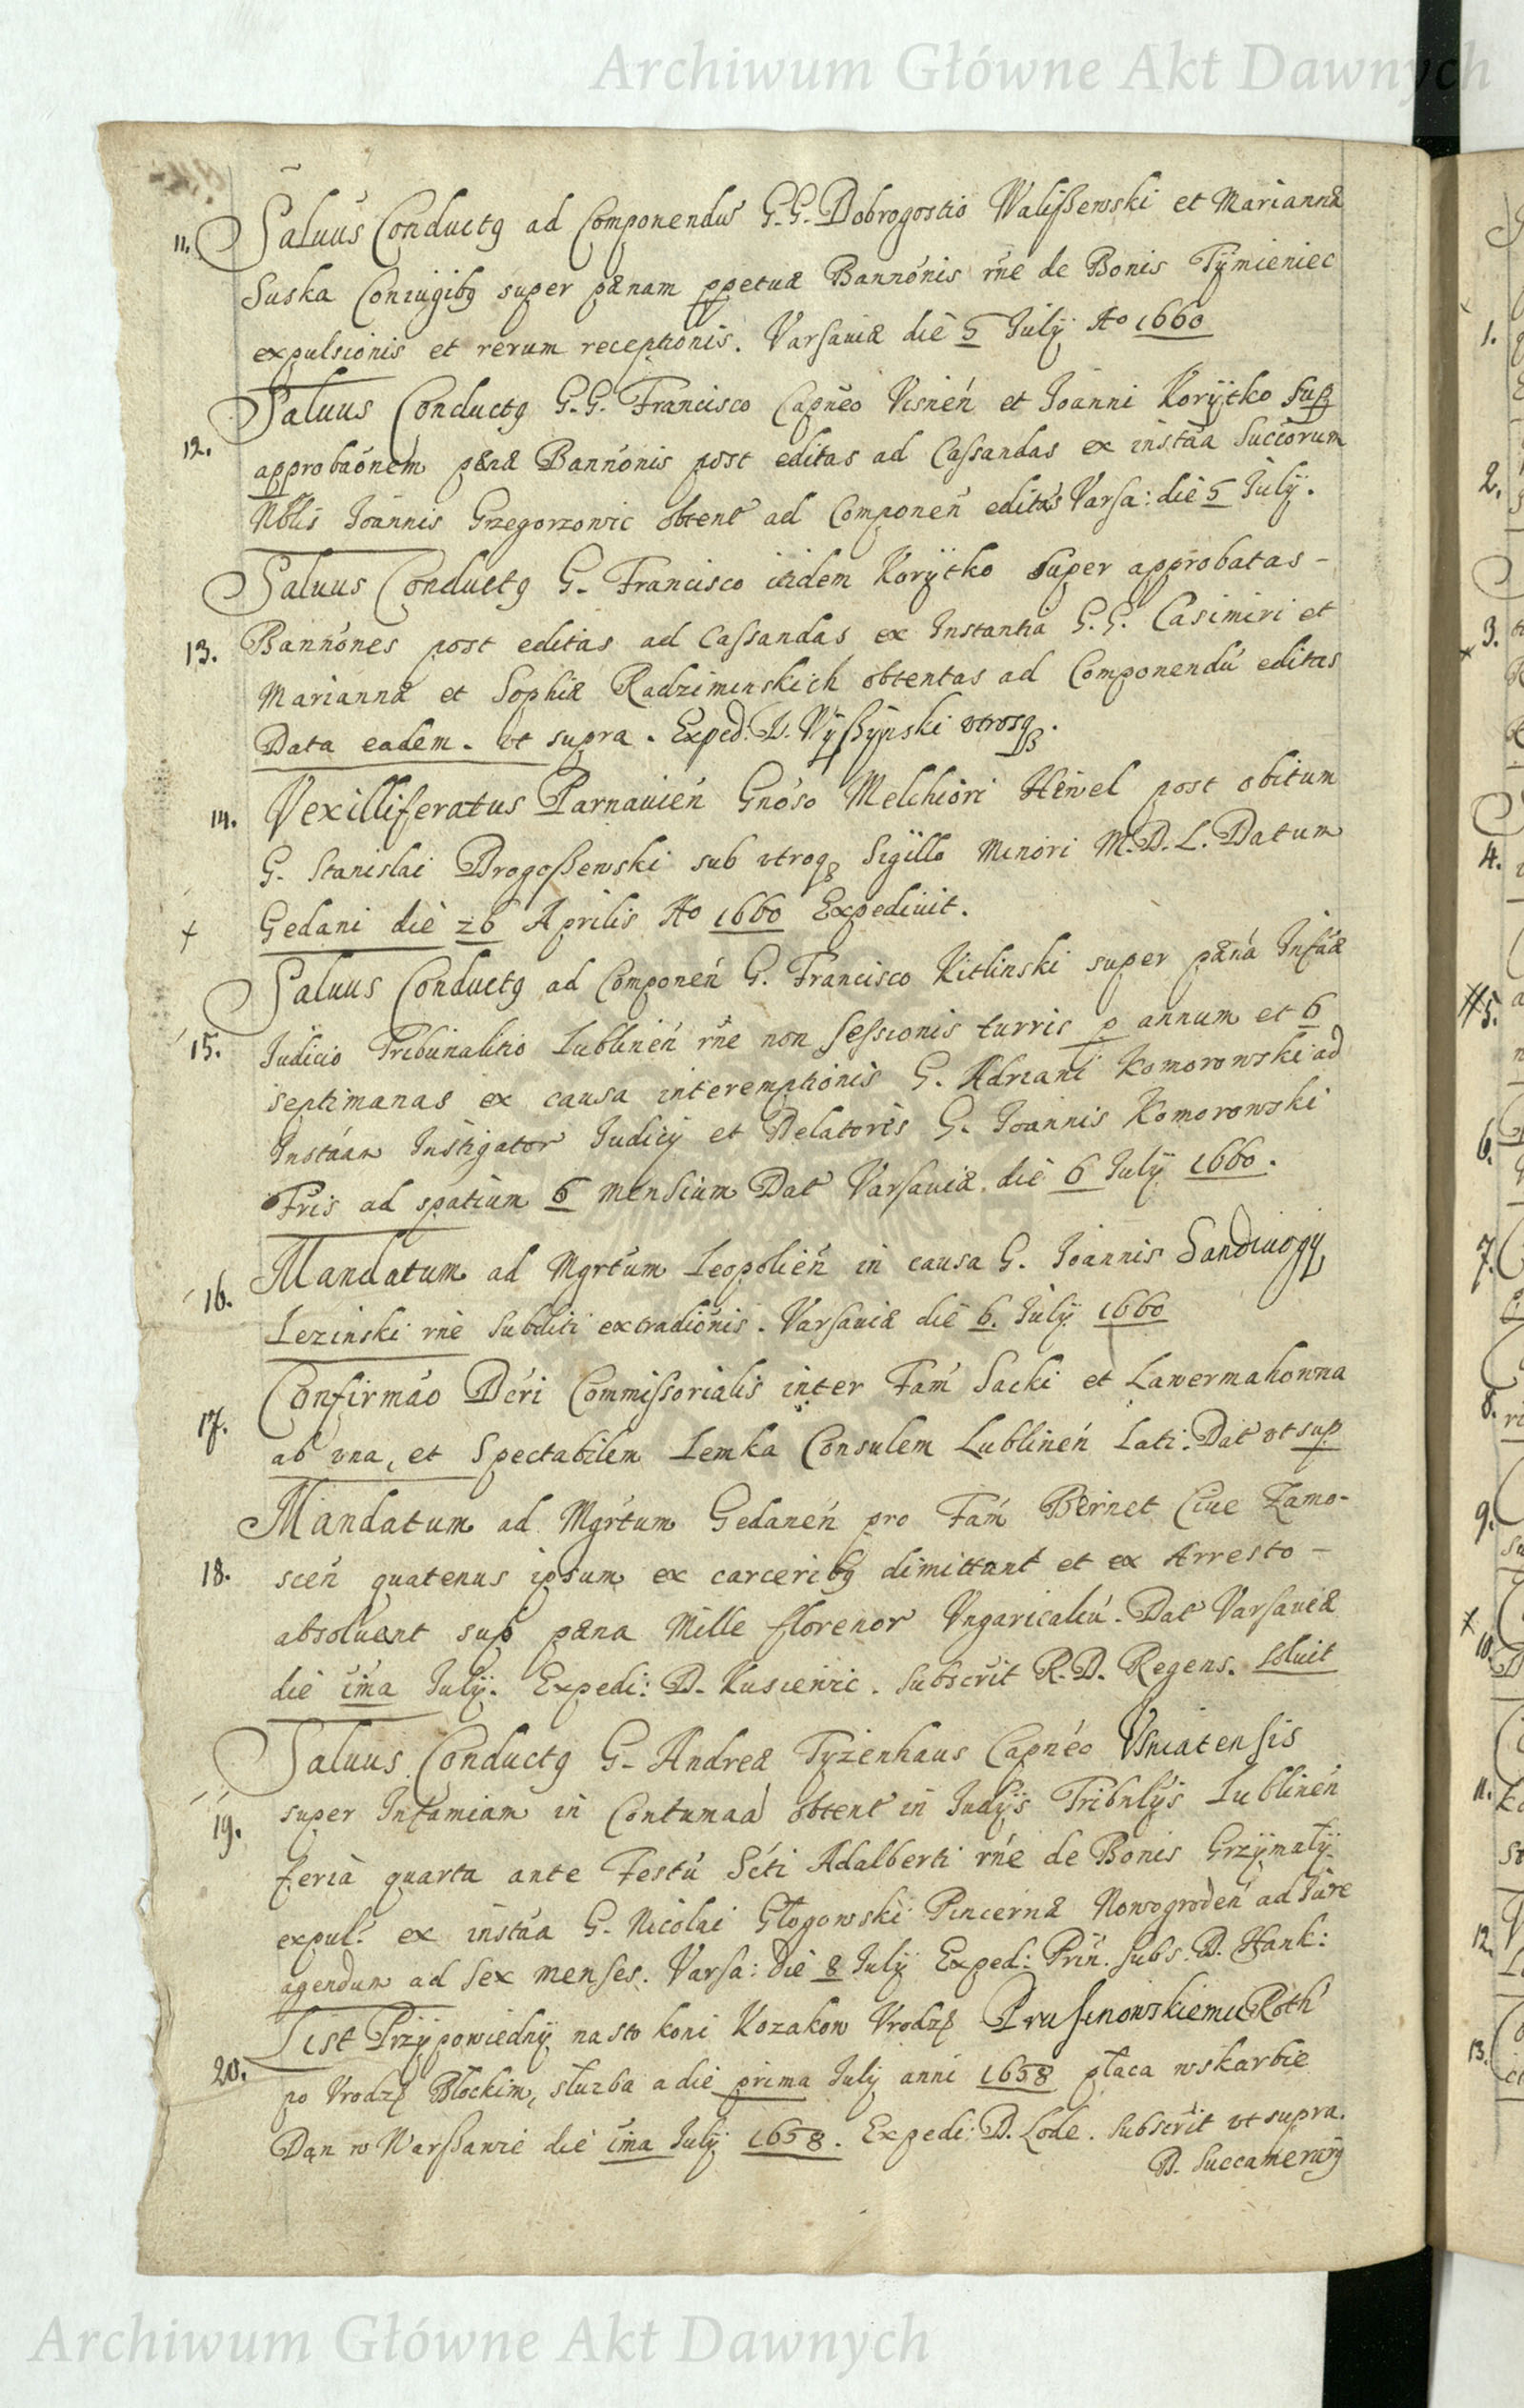 Archiwum Główne Akt Dawnych
11. Saluus Conductq ad Componendū G. G. Dobrogostio Walißewski et Mariannæ
Suska Coniugibq super pænam ppetuæ Bannónis rne de Bonis Tÿmieniec
expulsionis et rerum receptionis. Varsauiæ die 5 Julÿ Ao 1660
12. Saluus Conductq G. G. Francisco Capneo Visnen et Joanni Korÿtko sup
approbaónem pænæ Bannónis post editas ad Cassandas ex instâa Succorum
Nblis Joannis Grzegorzowic obtent ad Componen editas Varsa: die 5 Julÿ.
13. Saluus Conductq G. Francisco itidem Korÿtko super approbatas –
Bannónes post editas ad Cassandas ex Instantia G. G. Casimiri et
Mariannæ et Sophiæ Radziminskich obtentas ad Componendū editas
Data eadem. vt supra. Exped: D. Wÿßÿnski vtrosq.
14. Vexilliferatus Parnauień Gnóso Melchiori Hewel post obitum
G. Stanislai Drogoßewski sub vtroq Sigillo Minori M. D. L. Datum
x Gedani die 26 Aprilis Ao 1660 Expediuit.
15. Saluus Conductq ad Componeń G. Francisco Kitlinski super pænâ Infâæ
Judicio Tribunalitio Lublineń rne non sessionis turris p annum et 6
septimanas ex causa interemptionis G. Adriani Komorowski ad
Instâan Instigator Judicÿ et Delatoris G. Joannis Komorowski
Fris ad spatium 6 mensium Dat Varsauiæ die 6 Julÿ 1660.
16. Mandatum ad Mgrtum Leopolień in causa G. Joannis Sandiuogÿ
Lezinski rne subditi extradiónis. Varsauiæ die 6. Julÿ 1660
17. Confirmáo Dcri Commissorialis inter Fam Sacki et Lawermahonna
ab vna, et Spectabilem Lemka Consulem Lublineń Lati. Dat vt sup
18. Mandatum ad Mgrtum Gedaneń pro Fam Bernet Ciue Zamo-
sceń quatenus ipsum ex carceribq dimittant et ex Arresto –
absoluant sup pæna Mille florenor Vngaricaliū. Dat Varsauiæ
die ima Julÿ. Expedi: D. Kusiewic. Subscrit R. D. Regens. Soluit
19. Saluus Conductq G. Andreæ Tyzenhaus Capnéo Vsniatensis
super Infamiam in Contumaa obtent in Judÿs Tribnlÿs Lublineń
feria quarta ante Festū Scti Adalberti rne de Bonis Grzÿmałÿ
expul: ex instâa G. Nicolai Głogowski Pincernæ Nowogrodeń ad Jure
agendum ad sex menses. Varsa: die 8 July Exped: Prin. subs. D. Hank:
20. List Przÿpowiednÿ na sto koni Kozakow Vrodz Prusinowskiemu Roth
po Vrodz Błockim, służba a die prima July anni 1658 płaca w skarbie
Dan w Warßawie die ima July 1658. Expedi: D. Lode. Subscrit vt supra.
D. Succamerarq
1.
2.
x 3.
4.
5.
6.
7.
8.
9.
x 10.
11.
12.
13.
Archiwum Główne Akt Dawnych